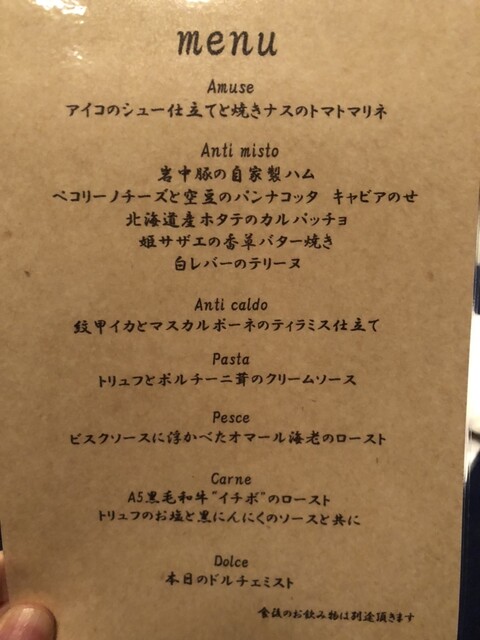 menu
Amuse
アイコのシュー仕立てと焼きナスのトマトマリネ
Anti misto
岩中豚の自家製ハム
ペコリーノチーズと空豆のパンナコッタ キャビアのせ
北海道産ホタテのカルパッチョ
姫サザエの香草バター焼き
白レバーのテリーヌ
Anti caldo
紋甲イカとマスカルポーネのティラミス仕立て
Pasta
トリュフとポルチーニ茸のクリームソース
Pesce
ビスクソースに浮かべたオマール海老のロースト
Carne
A5黒毛和牛"イチボ"のロースト
トリュフのお塩と黒にんにくのソースと共に
Dolce
本日のドルチェミスト
食後のお飲み物は別途頂きます